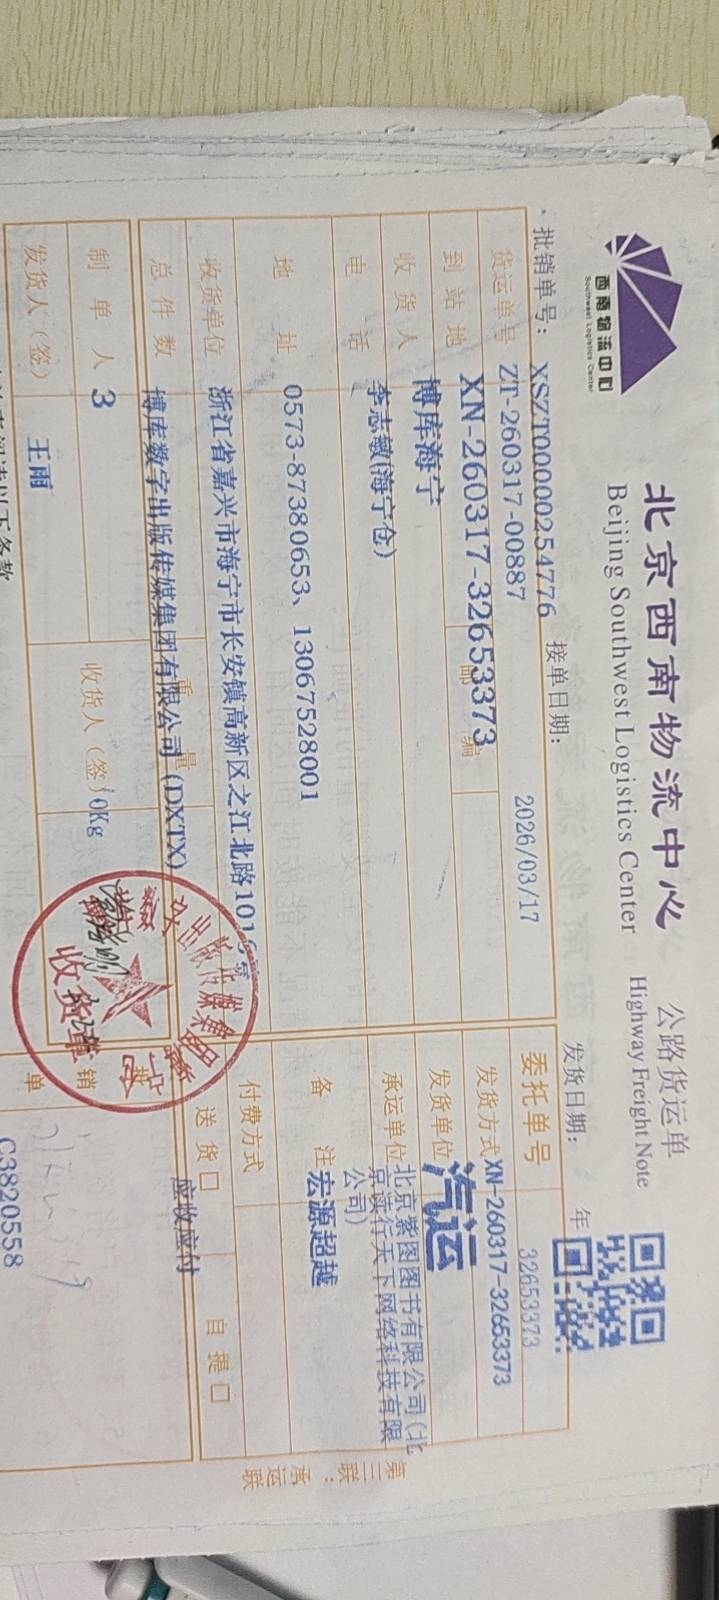 西南物流中心
Southwest Logistics Center
北京西南物流中心
Beijing Southwest Logistics Center
公路货运单
Highway Freight Note
批销单号：XSZT00000254776
接单日期：
2026/03/17
发货日期：
年
货运单号
ZT-260317-00887
委托单号
32653373
到站地
XN-260317-32653373
邮编
发货方式
XN-260317-32653373
收货人
博库海宁
发货单位
汽运
电话
李志敏(海宁仓)
承运单位
北京紫图图书有限公司(北
京读行天下网络科技有限
公司)
地址
0573-87380653、13067528001
备注
宏源超越
收货单位
浙江省嘉兴市海宁市长安镇高新区之江北路101
付费方式
送货口
自提口
总件数
博库数字出版传媒集团有限公司(DXTX)
重量
应收应付
制单人
3
收货人(签)
0Kg
收货章
销
单
发货人(签)
王雨
C3820558
第三联：承运联